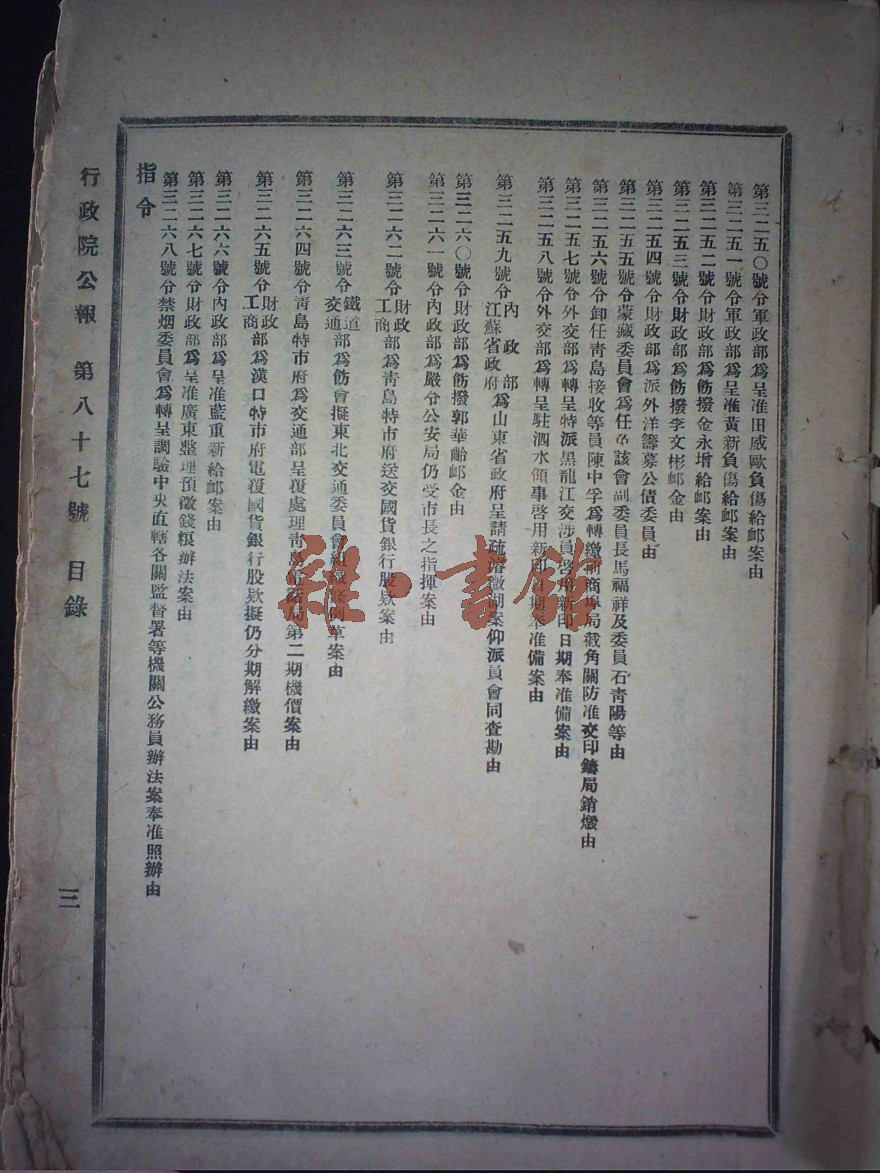 第三二五〇號令軍政部爲呈准田威歐負傷給邮案由
第三二五一號令軍政部爲呈准黃新負傷給邮案由
第三二五二號令財政部爲飭撥金永增給邮案由
第三二五三號令財政部爲飭撥李文彬邮金由
第三二五四號令財政部爲派外洋籌募公債委員由
第三二五五號令蒙藏委員會爲任免該會副委員長馬福祥及委員石靑陽等由
第三二五六號令卸任靑島接收等員陳中孚爲轉繳前商埠局截角關防准交印鑄局銷燬由
第三二五七號令外交部爲轉呈特派黑龍江交涉員啓用新印日期奉准備案由
第三二五八號令外交部爲轉呈駐泗水領事啓用新印日期奉准備案由
第三二五九號令內政部江蘇省政府爲山東省政府呈請疏濬微湖案仰派員會同查勘由
第三二六〇號令財政部爲飭撥郭華齡邮金由
第三二六一號令內政部爲嚴令公安局仍受市長之指揮案由
第三二六二號令財政工商部爲靑島特市府送交國貨銀行股欵案由
第三二六三號令鐵道交通部爲飭會擬東北交通委員會組織條例草案由
第三二六四號令靑島特市府爲交通部呈覆處理靑島電話局第二期機價案由
第三二六五號令財政工商部爲漢口特市府電覆國貨銀行股欵擬仍分期解繳案由
第三二六六號令內政部爲呈准藍重新給邮案由
第三二六七號令財政部爲呈准廣東整理預徵錢粮辦法案由
第三二六八號令禁烟委員會爲轉呈調驗中央直轄各關監督署等機關公務員辦法案奉准照辦由
指令
行政院公報 第八十七號 目錄
三
雜·書館